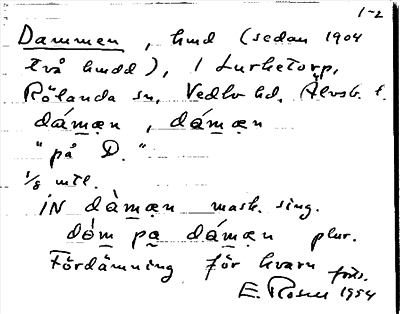 1-2
Dammen, hmd (sedan 1904
två hmdd), i Lurketorp,
Rölanda sn, Vedbo hd, Älvsb. l.
dámæn, dámæn
"på D."
1/8 mtl.
iN dàmæn mask. sing.
dóm pa dámæn plur.
Fördämning för kvarn förs.
E. Rosell 1954